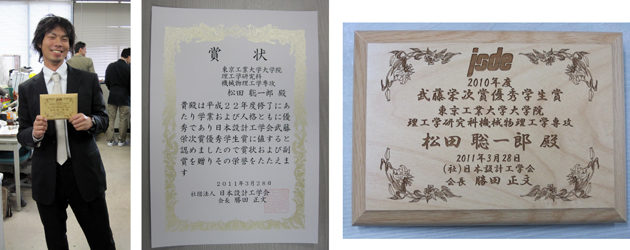 賞状
東京工業大学大学院
理工学研究科
機械物理工学専攻
松田 聡一郎 殿
貴殿は平成22年度修了にあ
たり学業および人格ともに優
秀であり日本設計工学会武藤
栄次賞優秀学生賞に値すると
認めましたので賞状および副
賞を贈りその栄誉をたたえま
す
2011年3月28日
社団法人 日本設計工学会
会長 勝田 正文
jsde
2010年度
武藤栄次賞優秀学生賞
東京工業大学大学院
理工学研究科機械物理工学専攻
松田 聡一郎 殿
2011年3月28日
(社)日本設計工学会
会長 勝田 正文